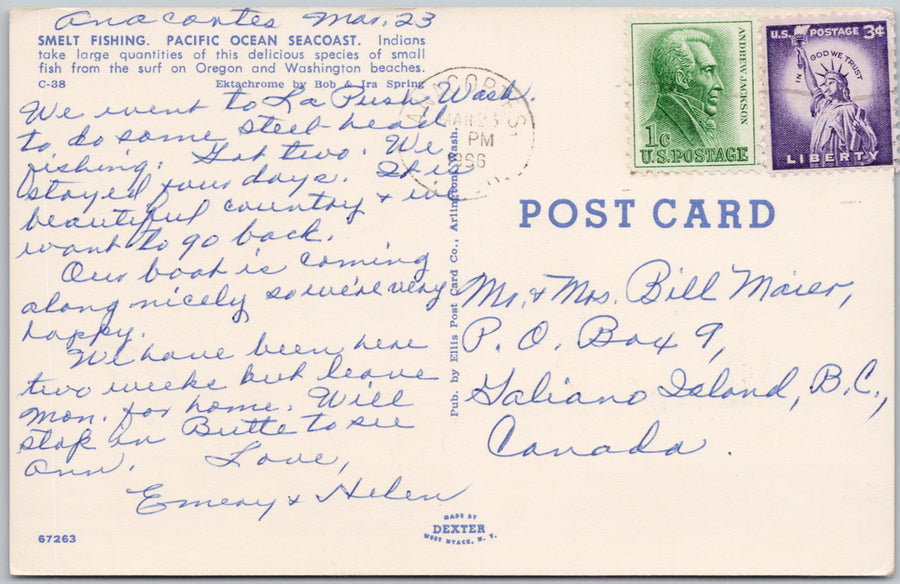 Anacortes Mar. 23
SMELT FISHING. PACIFIC OCEAN SEACOAST. Indians
take large quantities of this delicious species of small
fish from the surf on Oregon and Washington beaches.
C-38 Ektachrome by Bob & Ira Spring
We went to La Push, Wash.
to do some steel-head
fishing. Got two. We
stayed four days. It is
beautiful country & we
want to go back.
Our boat is coming
along nicely so we're very
happy.
We have been here
two weeks but leave
Mon. for home. Will
stop in Butte to see
Ann. Love,
Emery & Helen
67263
Pub. by Ellis Post Card Co., Arlington, Wash.
MADE BY
DEXTER
WEST NYACK, N. Y.
ANACORTES,
MAR 23
PM
1966
ANDREW JACKSON
1c
U.S. POSTAGE
U.S. POSTAGE 3¢
IN GOD WE TRUST
LIBERTY
POST CARD
Mr. & Mrs. Bill Maier,
P. O. Box 9,
Galiano Island, B.C.,
Canada.